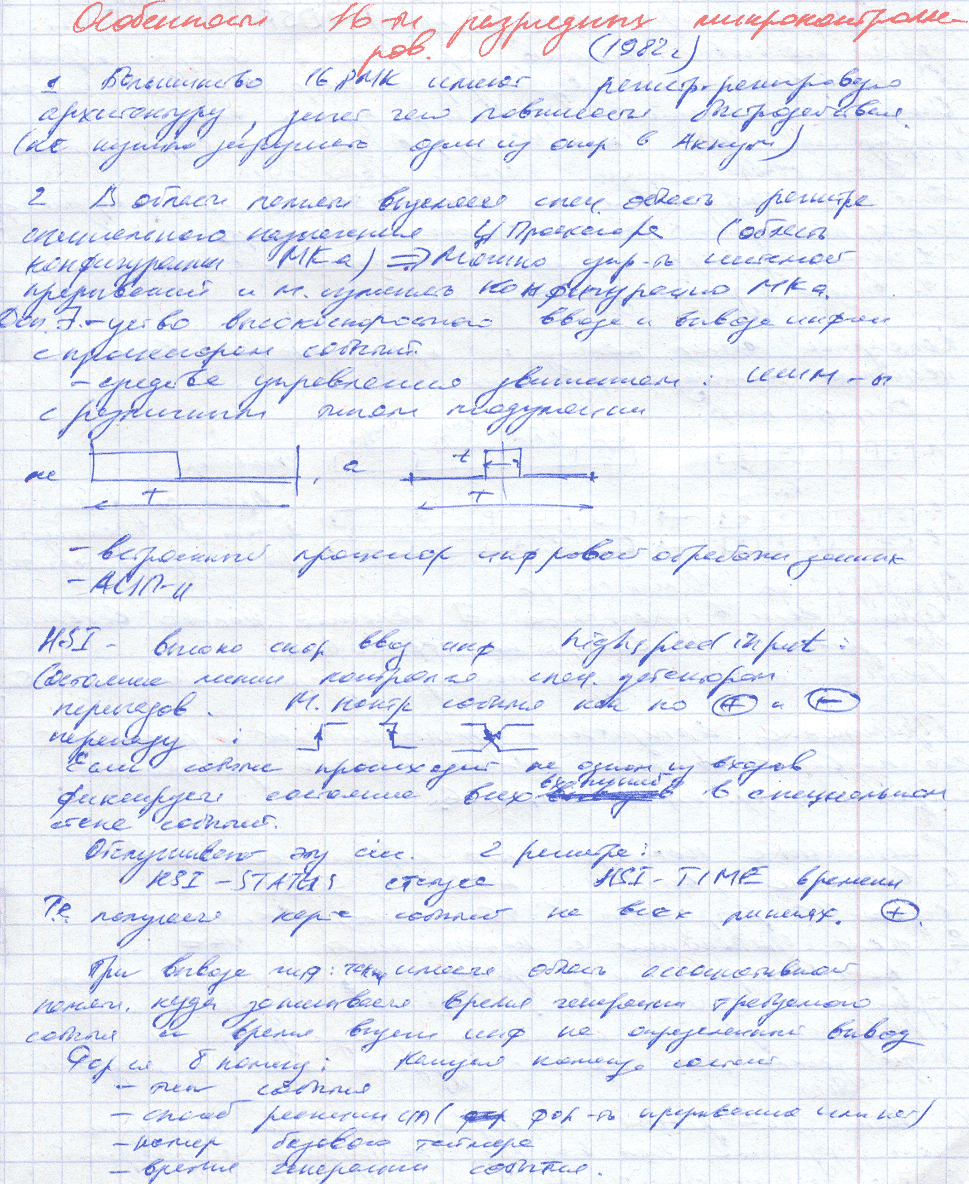 Особенности 16-ти разрядных микроконтролле
ров.
(1982г)
1 Большинство 16 РМК имеют регистр-регистровую
архитектуру, за счет чего повышается быстродействие
(не нужно загружать один из опер в Аккум)
2 В области памяти выделяется спец. область регистров
специального назначения ЦПроцессора (область
конфигурации МКа) => Можно упр-ть системой
прерываний и м. изменять конфигурацию МКа.
Осн. - уст-во высокоскоростного ввода и вывода информ
с процессором событий.
- средства управления двигателем: ШИМ-ы
с различным типом модуляции
не T , а t T
- встроенный процессор цифровой обработки данных
- АЦП-ы
HSI - высоко скор ввод инф high speed input:
Состояние линии контроля спец. детектором
перепадов. М. контр события как по + и -
перепаду :
Если событие происходит на одном из входов
фиксируется состояние всех в специальном
стеке событий.
Обслуживают эту сис. 2 регистра:
HSI-STATUS статуса HSI-TIME времени
Т.е. получаем карта событий на всех линиях. +
При выводе инф: имеется область ассоциативной
памяти, куда записывается время генерации требуемого
события и время выдачи инф на определенный вывод
команд: Каждая команда состоит
- тип события
- способ реакции ЦП ( фор-ть прерывание или нет)
- номер базового таймера
- время генерации события.